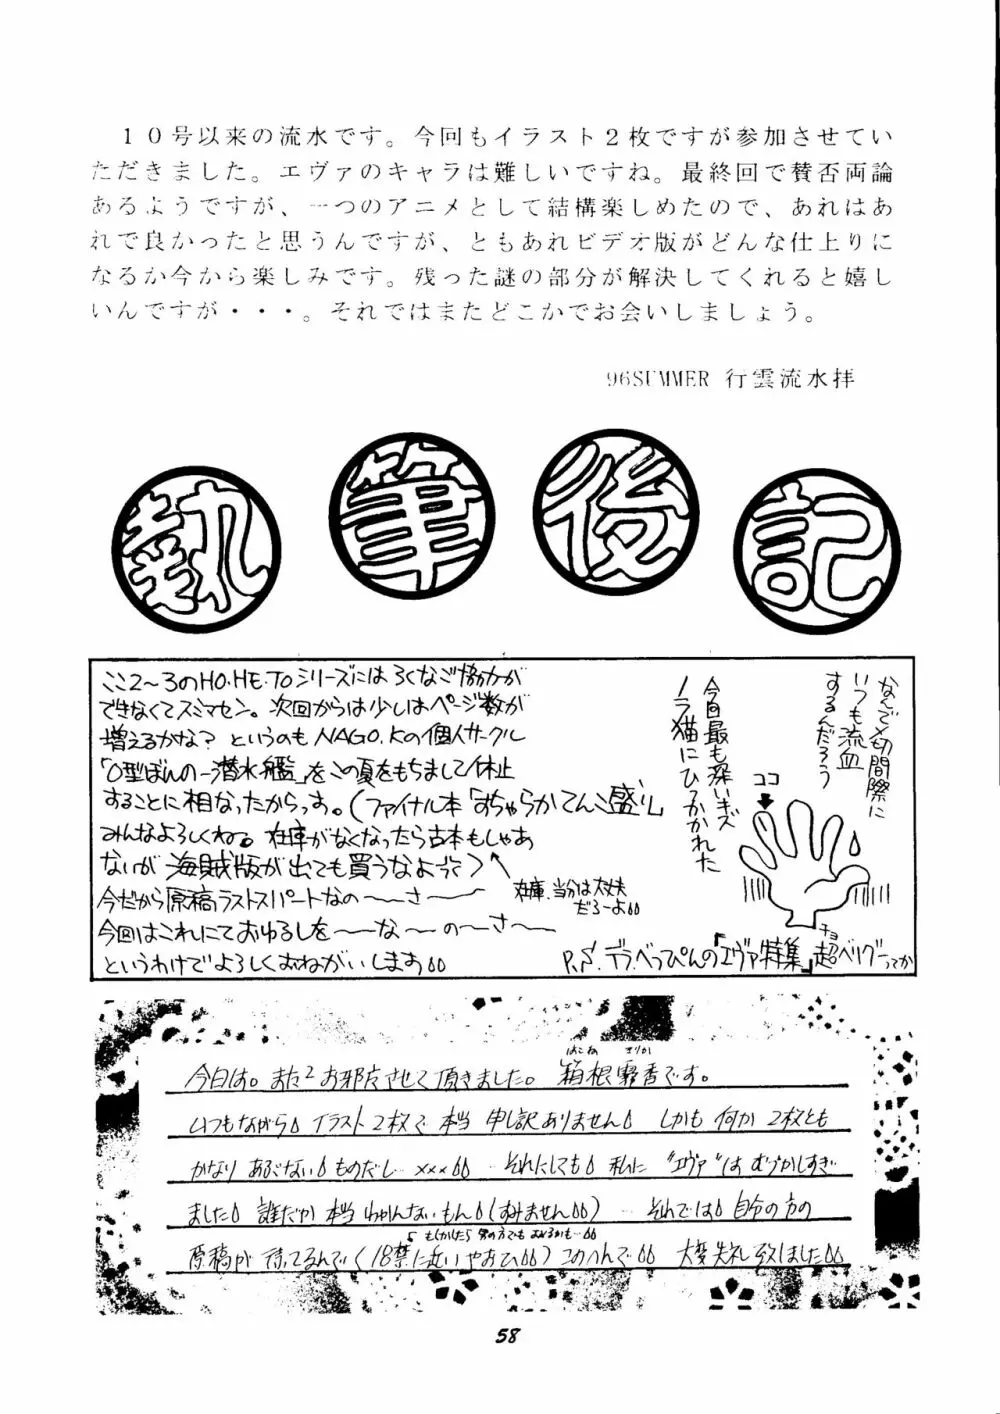 １０号以来の流水です。今回もイラスト２枚ですが参加させてい
ただきました。エヴァのキャラは難しいですね。最終回で賛否両論
あるようですが、一つのアニメとして結構楽しめたので、あれはあ
れで良かったと思うんですが、ともあれビデオ版がどんな仕上りに
なるか今から楽しみです。残った謎の部分が解決してくれると嬉し
いんですが・・・。それではまたどこかでお会いしましょう。
96SUMMER 行雲流水拝
執筆後記
ここ2〜3のHO・HE・TOシリーズにはろくなご協力が
できなくてスミマセン。次回からは少しはページ数が
増えるかな？というのもNAGO.Kの個人サークル
「O型ぼんの一潜水艦」をこの夏をもちまして休止
することに相なったからっす。(ファイナル本「おちゃらかてんこ盛り」
みんなよろしくね。在庫がなくなったら古本もしゃあ
ないが海賊版が出ても買うなよ)
在庫、当分は大丈夫
だろーよ
今だから原稿ラストスパートなの〜〜さ〜〜
今回はこれにておゆるしを〜〜な〜の〜さ〜
というわけでよろしくおねがいします
なんで〆切間際に
いつも流血
するんだろう
ココ
今回最も深いキズ
ノラ猫にひっかかれた
P.S.デラべっぴんの「エヴァ特集」超ベリグーってか
チョ
はこね きりか
今日は。また2お邪魔させて頂きました。箱根霧香です。
いつもながら イラスト2枚で 本当 申し訳ありません しかも 何か 2枚とも
かなり あぶない ものだし… xxx …それにしても 私に "エヴァ"は むづかしすぎ
ました 誰だか 本当 わかんないもん (すみません) …それでは 自分の方の
もしかしたら
原稿が 待ってるんで (18禁に近いやおい) このへんで 大変 失礼 致しました
58